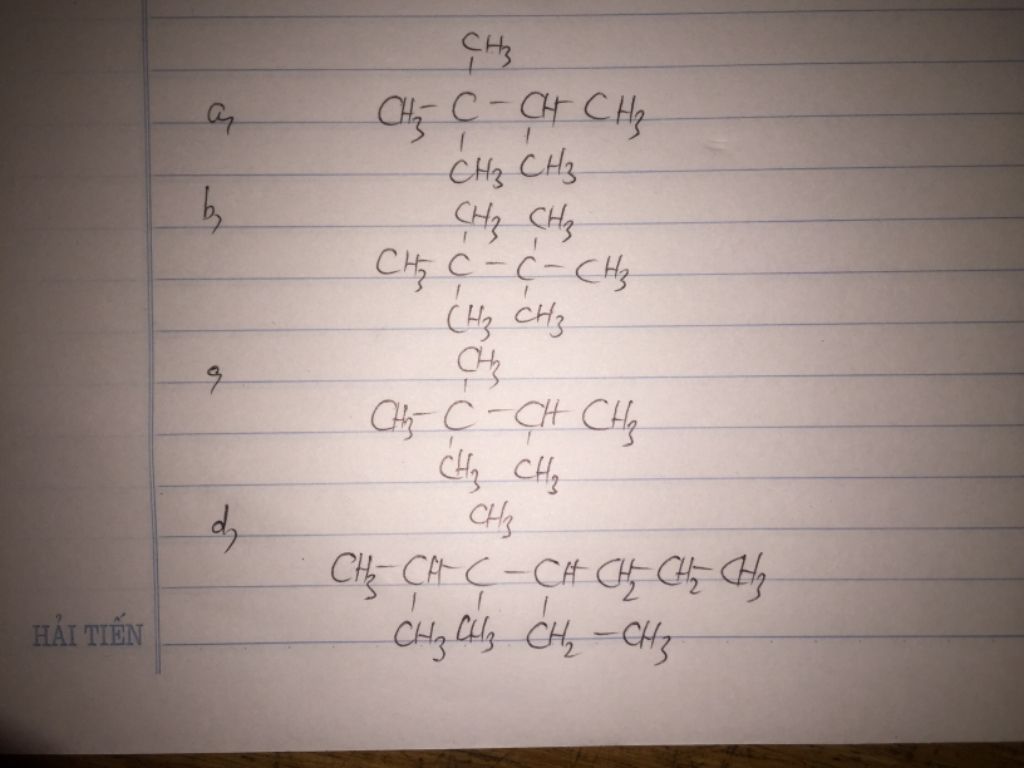 CH3
a, CH3 - C - CH - CH3
CH3 CH3
b, CH3 CH3
CH3 - C - C - CH3
CH3 CH3
CH3
c, CH3 - C - CH - CH3
CH3 CH3
d, CH3
CH3 - CH - C - CH - CH2 - CH2 - CH3
CH3 CH3 CH2 - CH3
HẢI TIẾN